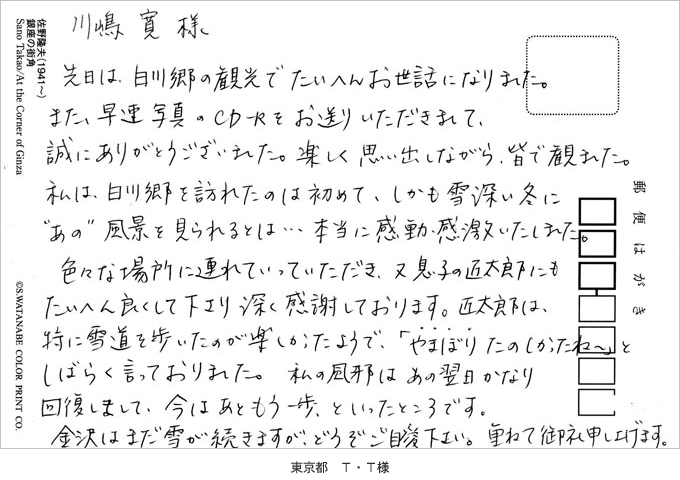 川嶋 寛 様
先日は、白川郷の観光でたいへんお世話になりました。
また、早速写真のCD-Rをお送りいただきまして、
誠にありがとうございました。楽しく思い出しながら、皆で観ました。
私は、白川郷を訪れたのは初めて、しかも雪深い冬に
"あの"風景を見られるとは…本当に感動・感激いたしました。
色々な場所に連れていっていただき、又息子の匠太郎にも
たいへん良くして下さり深く感謝しております。匠太郎は、
特に雪道を歩いたのが楽しかったようで、「やまぼり たのしかったね〜」と
しばらく言っておりました。 私の風邪はあの翌日かなり
回復しまして、今はあともう一歩、といったところです。
金沢はまだ雪が続きますが、どうぞご自愛下さい。重ねて御礼申し上げます。
佐野隆夫(1941〜)
銀座の街角
Sano Takao/At the Corner of Ginza
©S.WATANABE COLOR PRINT CO.
郵便はがき
東京都 T・T様